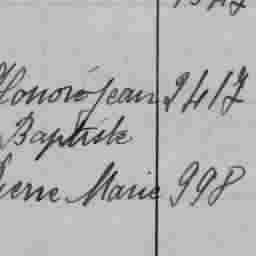 Honoré Jean 2417
Baptiste
Pierre Marie 998